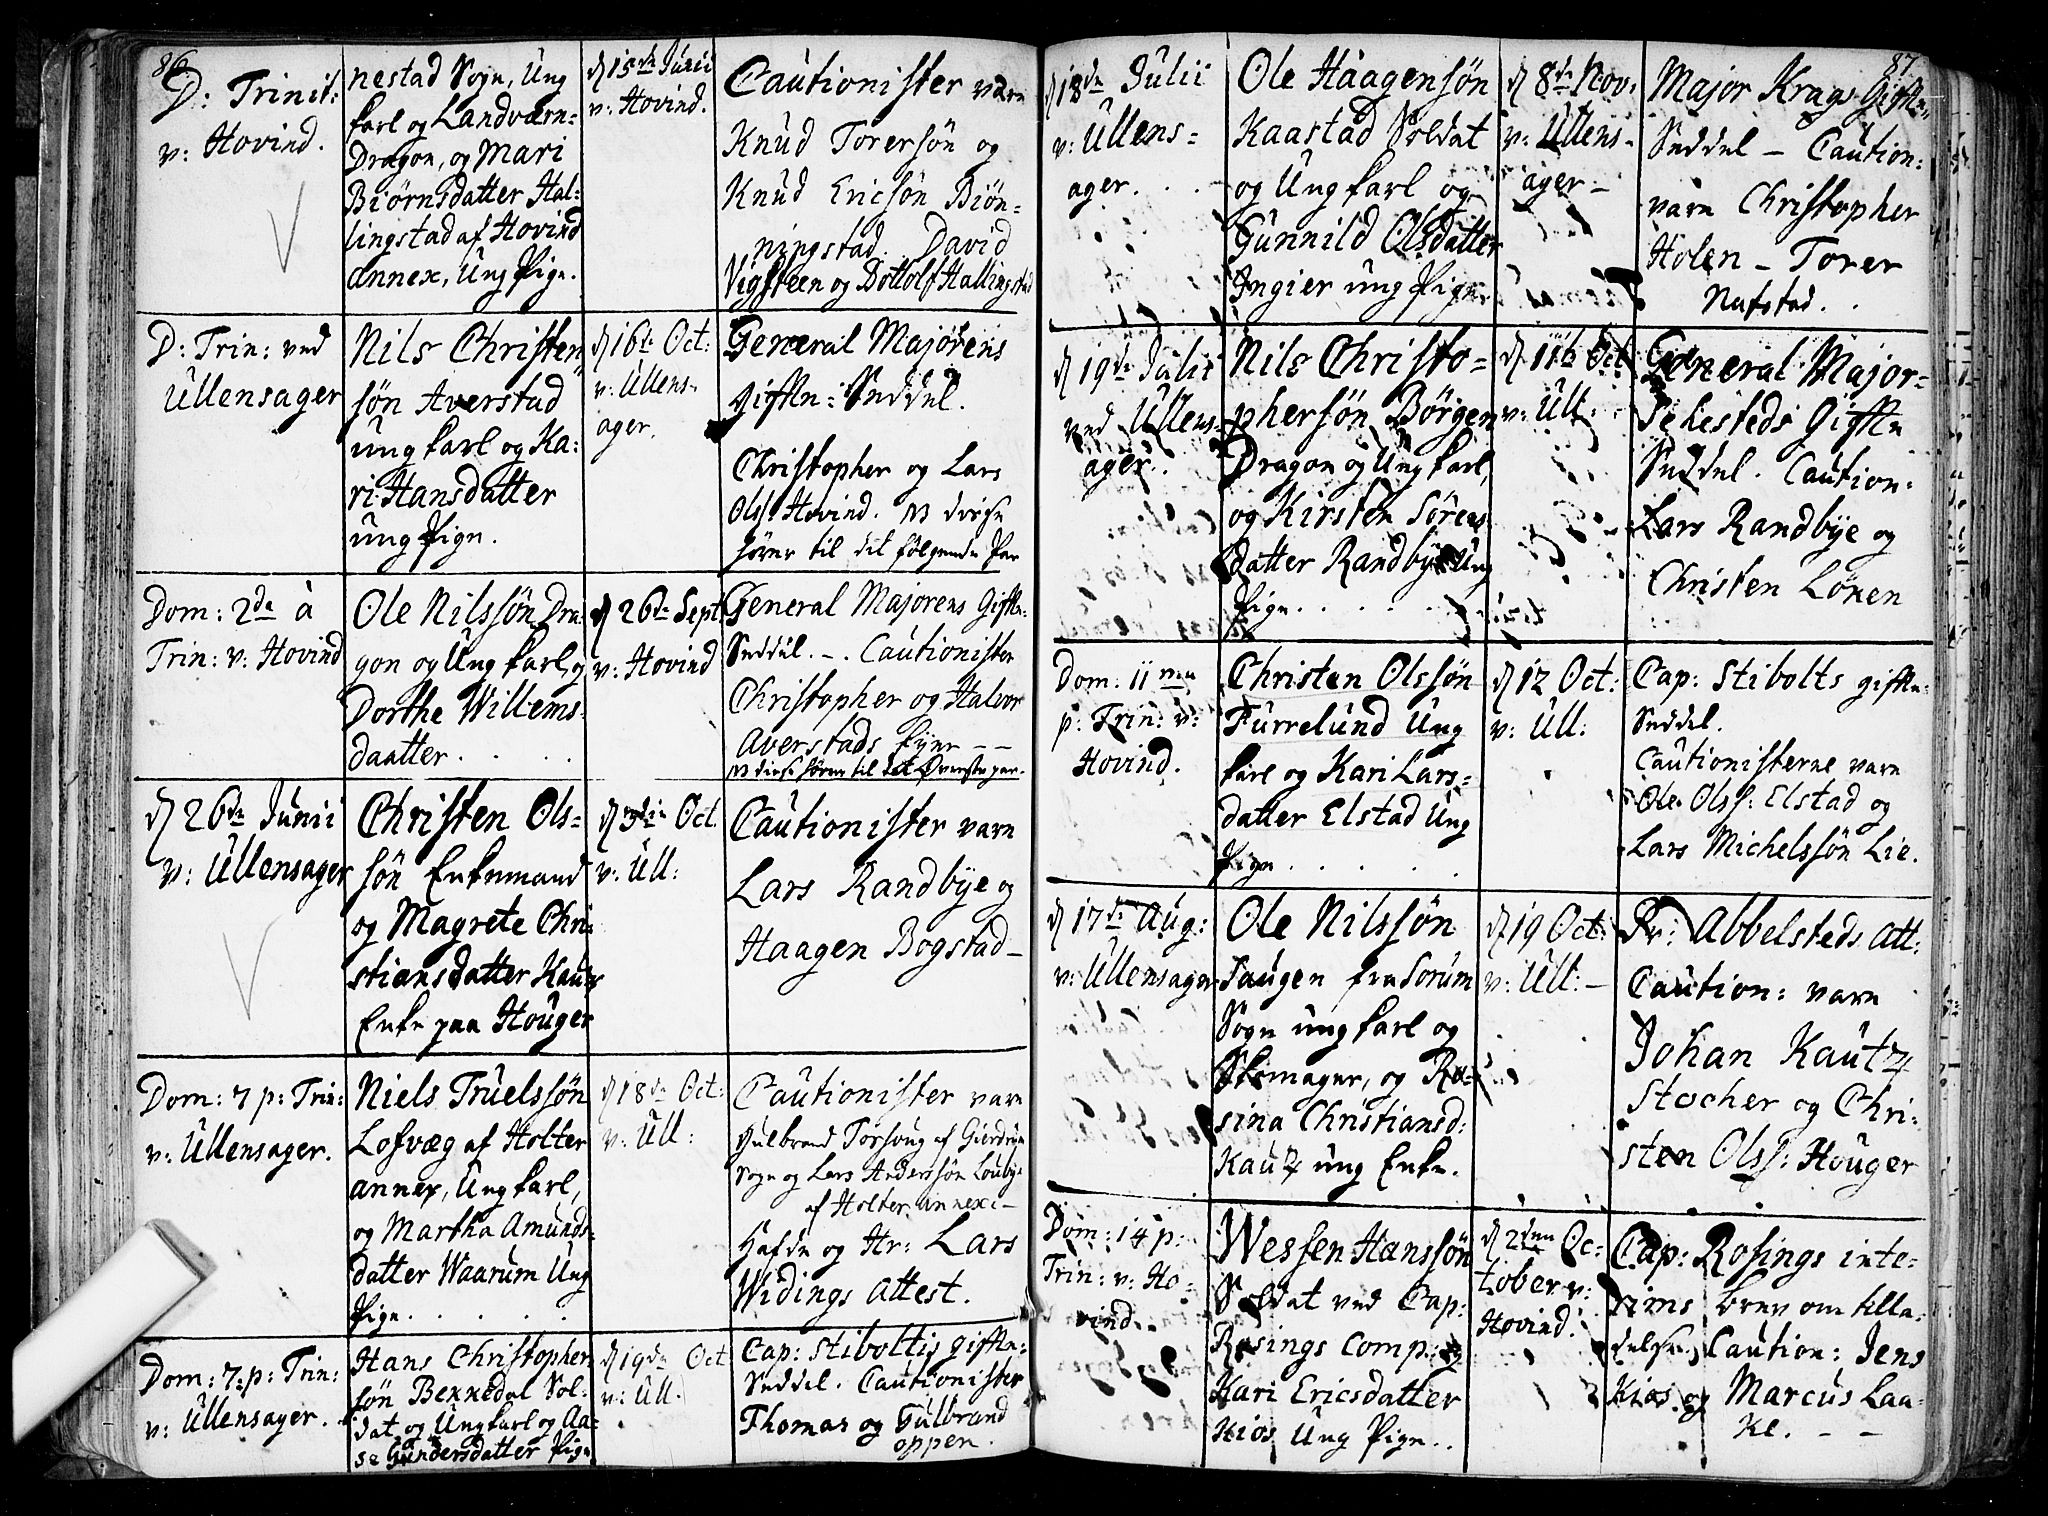 86.
D: Trinit:
v: Hovind.
nestad Sogn, Ung
karl og Landværn-
Dragon, og Mari
Biörnsdatter Hal-
lingstad af Hovind
annex, Ung Pige.
d 15de Junii
v: Hovind.
Cautionister vare
Knud Torersön og
Knud Ericsön Biön-
ningstad. David
Vigsteen og Dottolf Hallingstad
D: Trin: ved
Ullensager
Nils Christen
sön Averstad
ung karl og Ka-
ri Hansdatter
ung Pige.
d 16de Oct:
v: Ullens-
ager.
General Majorens
Gifte: Seddel.
Christopher og Lars
Olss: Hovind. NB disse
hörer til det fölgende Par
Dom: 2da à
Trin: v: Hovind
Ole Nilssön Dra-
gon og Ung karl og
Dorthe Willems-
daatter . . .
d 26de Sept
v: Hovind
General Majorens Gifte-
Seddel. -. Cautionister
Christopher og Halvor
Averstads Eyer --
NB disse hörer til det Överste par.
d 26de Junii
v: Ullensager
Christen Ols-
sön Enkemand
og Magrete Chri-
stiansdatter Kautz
Enke paa Houger
Oct
v: Ull:
Cautionister vare
Lars Randbye og
Haagen Bogstad -
Dom: 7 p: Trin:
v: Ullensager.
Niels Truelssön
Lofvæg af Holter
annex, Ung karl,
og Martha Amunds-
datter Waarum Ung
Pige. . . . .
d 18de Oct:
v: Ull:
Cautionister vare
Gulbrand af Gierdrum
Sogn og Lars Anderssön Loubye
af Holter annex: -
Hafde og Hr: Lars
Widings Attest.
Dom: 7. p: Trin:
v: Ullensager.
Hans Christopher
sön Bennedal Sol-
dat og Ung karl og Aa-
se Gundersdatter Pige
d 19de Oct
v: Ull.
Cap: Stiboltis Gifte:
Seddel. Cautionister
Thomas og Gulbrand
oppen.
87.
d 18de Julii
v: Ullens-
ager. . .
Ole Haagensön
Kaastad Soldat
og Ung karl og
Gunnild Olsdatter
Ingier ung Pige
d 8de Nov:
v: Ullens-
ager -
Major Krags Gifte-
Seddel - Caution:
vare Christopher
Holen - Torer
Nafstad. .
d 19de Julii
ved Ullens-
ager.
Nils Christo-
phersön Börgen
Dragon og Ung karl,
og Kirsten Sörens
datter Randbye Ung
Pige. . . . .
d 11te Oct
v: Ull:
General Major-
Sehesteds Gifte
Seddel. Caution:
Lars Randbye og
Christen Lönen
Dom: 11ma
p: Trin: v:
Hovind.
Christen Olssön
Furrelund Ung
karl og Kari Lars-
datter Elstad Ung
Pige . . . .
d 12 Oct:
v: Ull:
Cap: Stibolts gifte:
Seddel.
Cautionisterne vare
Ole Olss: Elstad og
Lars Michelssön Lie.
d 17de Aug:
v: Ullensager
Ole Nilssön
Saugen fra Sorum
Sogn ung karl og
Skomager, og Ro-
sina Christiansd:
Kautz ung Enke.
d 19 Oct:
v: Ull: -
Pr: Abbelsteds Att:
Caution: vare
Johan Kautz
Stocher og Chri-
sten Olss: Houger
Dom: 14 p:
Trin: v: Ho-
vind.
Wessen Hanssön
Soldat ved Cap:
Rosings Comp: og
Kari Ericsdatter
Kios Ung Pige..
d 2den Oc-
tober v:
Hovind.
Cap: Rosings inte-
rims brev om tilla-
delse, Caution: Jens
Kios og Marcus Laa-
ke. - -